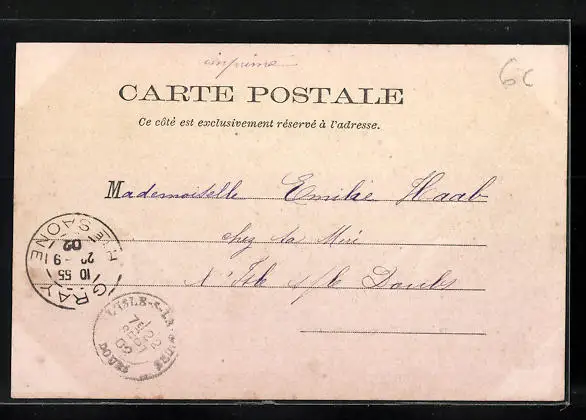 imprimé
6c
CARTE POSTALE
Ce côté est exclusivement réservé à l'adresse.
Mademoiselle Emilie Haab
chez sa Mère
L'Isle s/le Doubs
GRAY
Hte SAONE
10 55
02
L'ISLE-S-LE-DOUBS
DOUBS
02